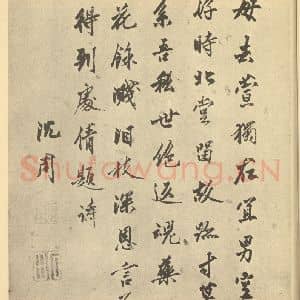 母去萱獨存宜男室
好時北堂留故蹤寸草
系吾私世絶返魂藥
花餘濺泪枝深恩言
得到處倩題诗
沈周
Shufawang.CN